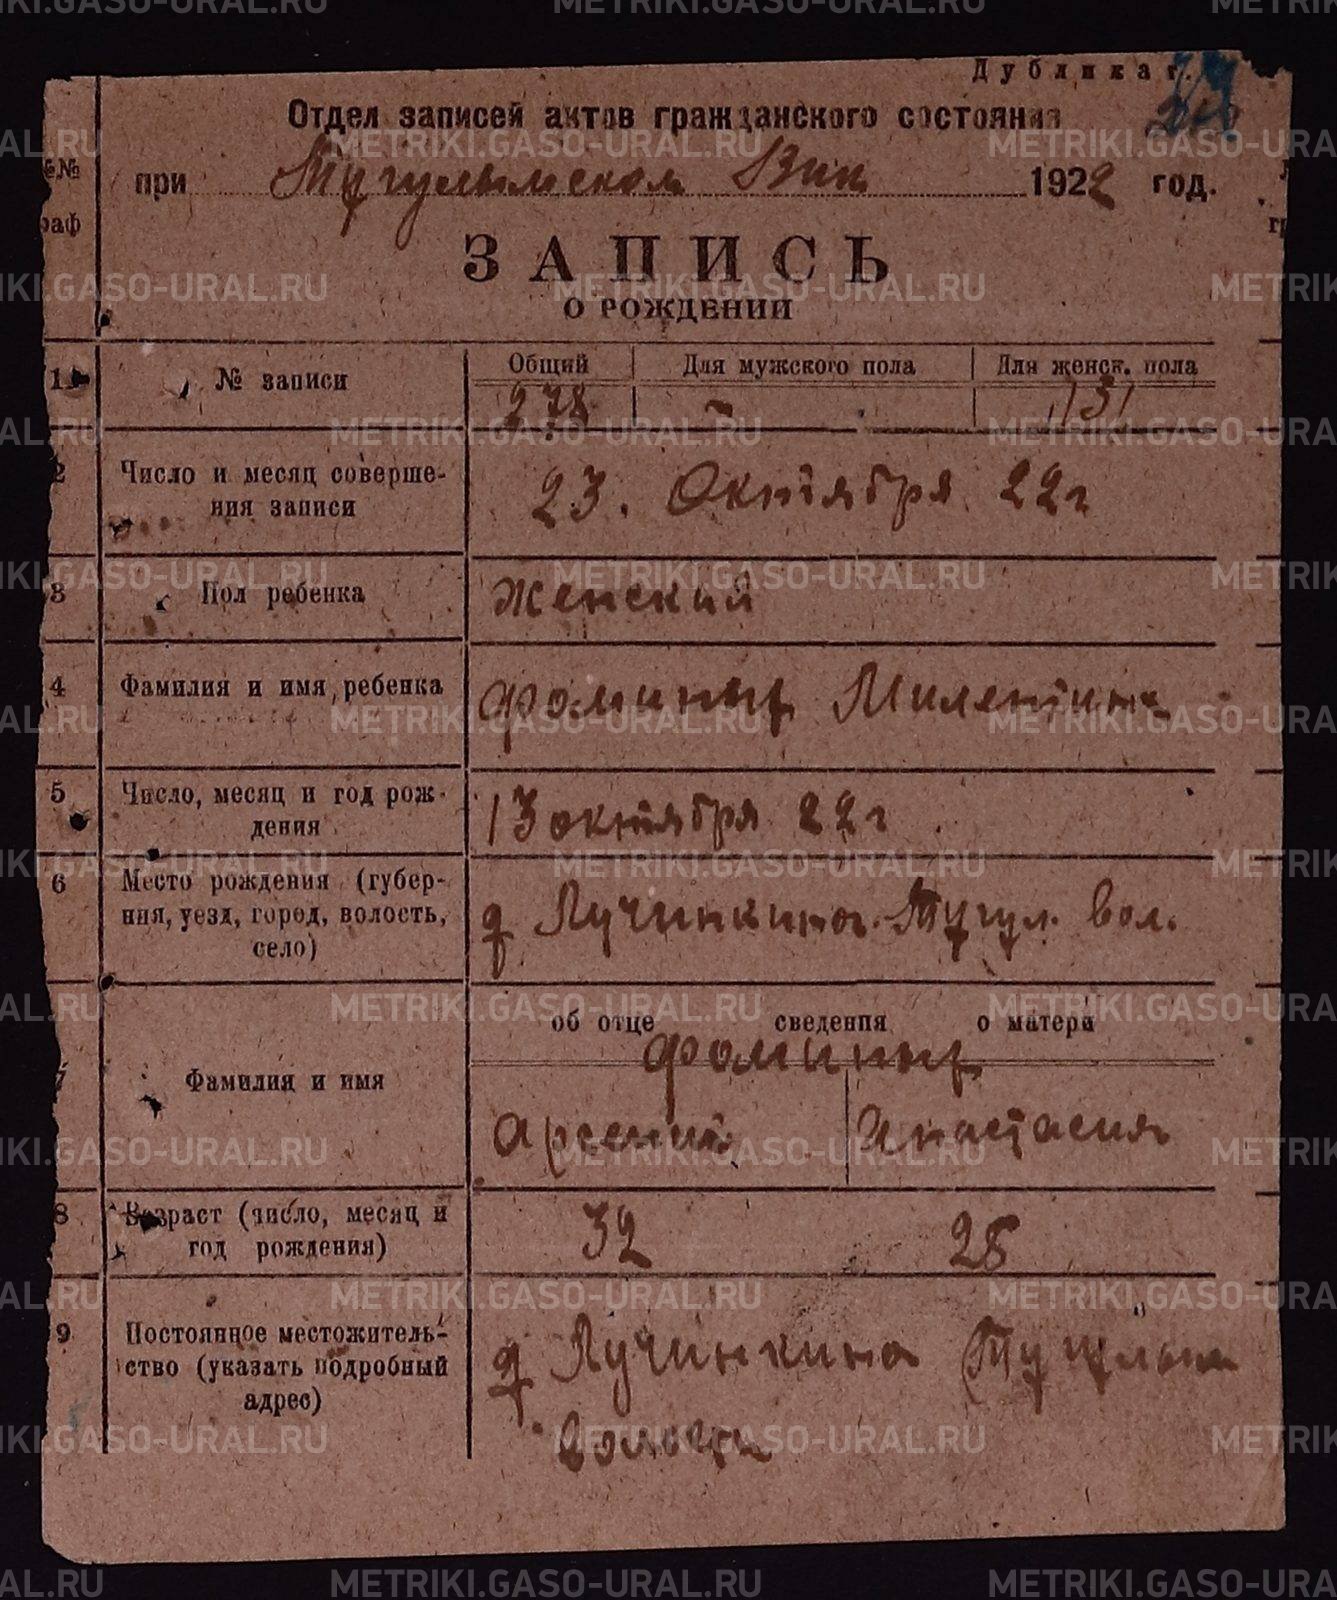 Дубликат.
Отдел записей актов гражданского состояния
при Тугулымском Вик 1922 год.
№№
граф
ЗАПИСЬ
О РОЖДЕНИИ
1 № записи Общий Для мужского пола Для женск. пола
278 - 131
2 Число и месяц соверше-
ния записи
23. Октября 22 г
3 Пол ребенка Женский
4 Фамилия и имя ребенка Фоминых Милентина
5 Число, месяц и год рож-
дения
13 октября 22 г
6 Место рождения (губер-
ния, уезд, город, волость,
село)
д Лучинкина Тугул. вол.
об отце сведения о матери
Фоминых
7 Фамилия и имя
Арсений Анастасия
8 Возраст (число, месяц и
год рождения)
32 28
9 Постоянное местожитель-
ство (указать подробный
адрес)
д Лучинкина
METRIKI.GASO-URAL.RU